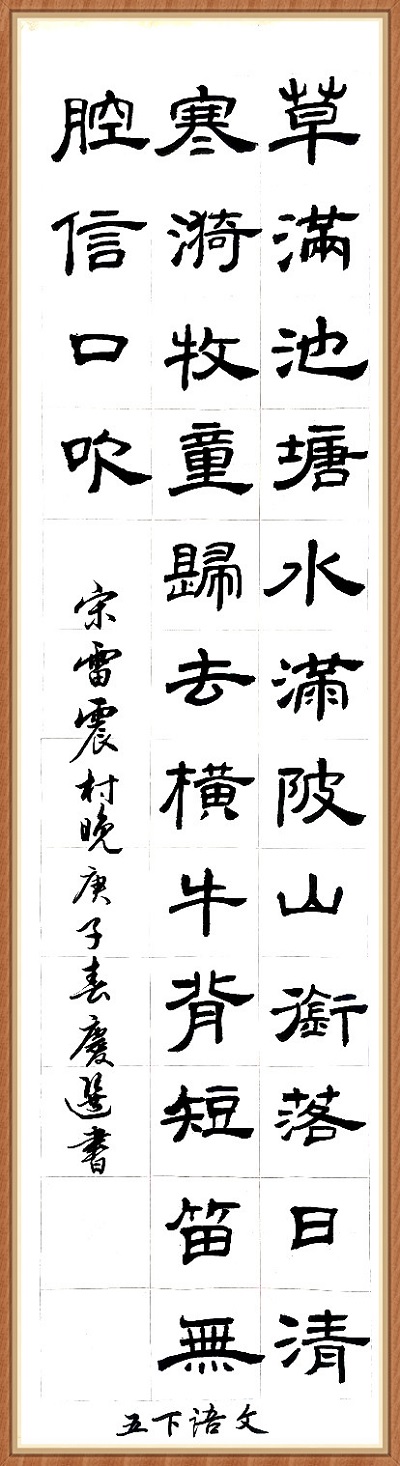 草滿池塘水滿陂山銜落日清
寒漪牧童歸去橫牛背短笛無
腔信口吹
宋雷震村晚庚子春慶選書
五下语文